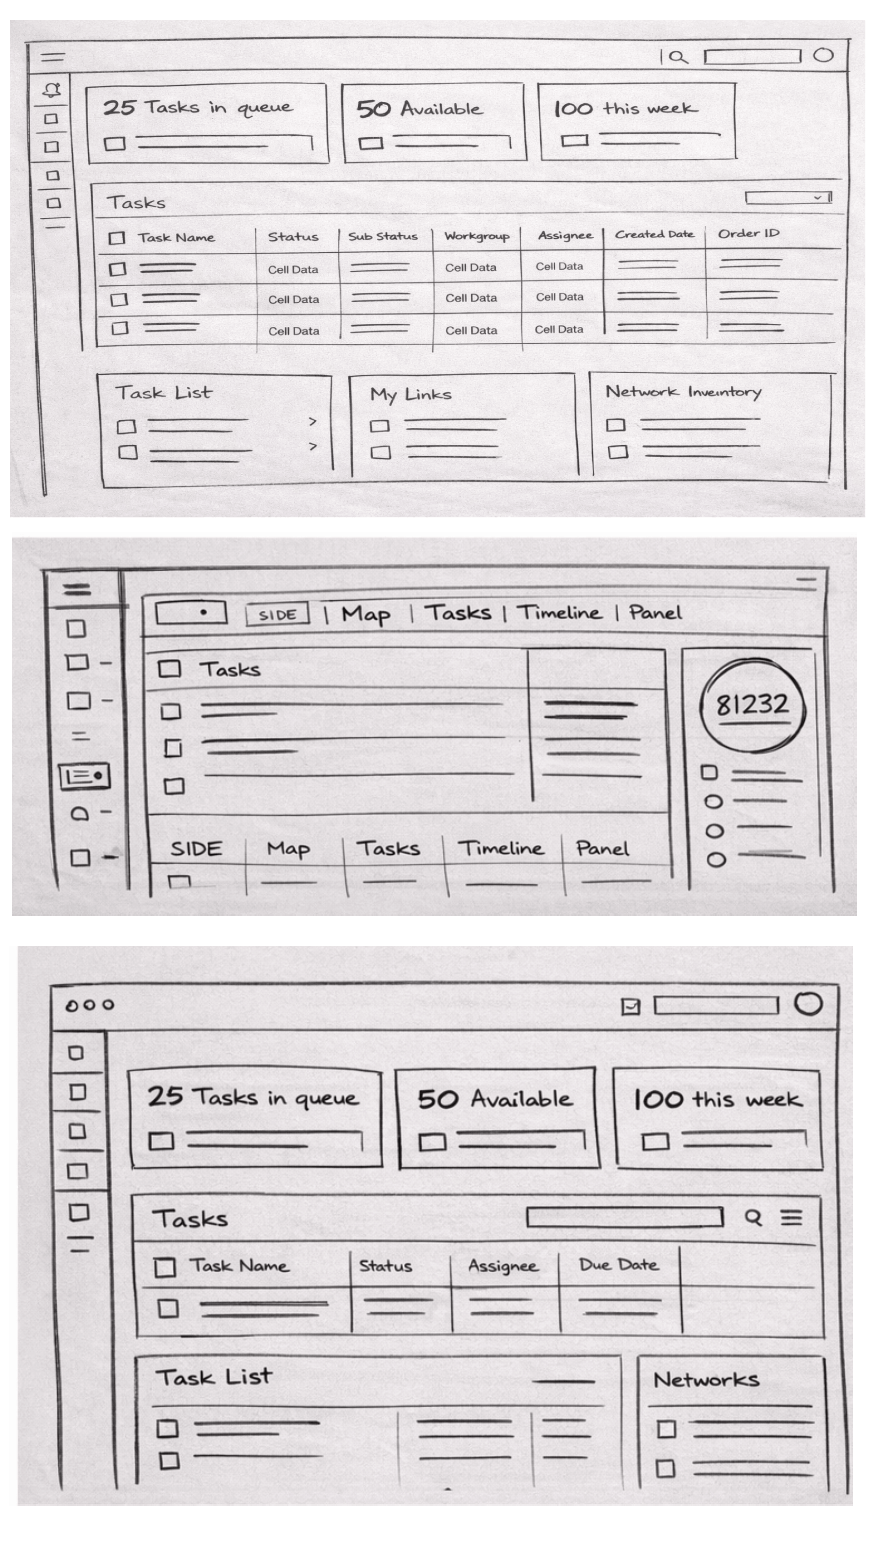 25 Tasks in queue
50 Available
100 this week
Tasks
Task Name Status Sub Status Workgroup Assignee Created Date Order ID
Cell Data Cell Data Cell Data
Cell Data Cell Data Cell Data
Cell Data Cell Data Cell Data
Task List
My Links
Network Inveintory
SIDE | Map | Tasks | Timeline | Panel
Tasks
81232
SIDE Map Tasks Timeline Panel
25 Tasks in queue
50 Available
100 this week
Tasks
Task Name Status Assignee Due Date
Task List
Networks